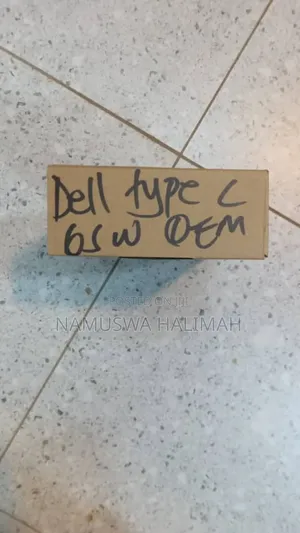 Dell type C
65W OEM
NAMUSWA HALIMAH